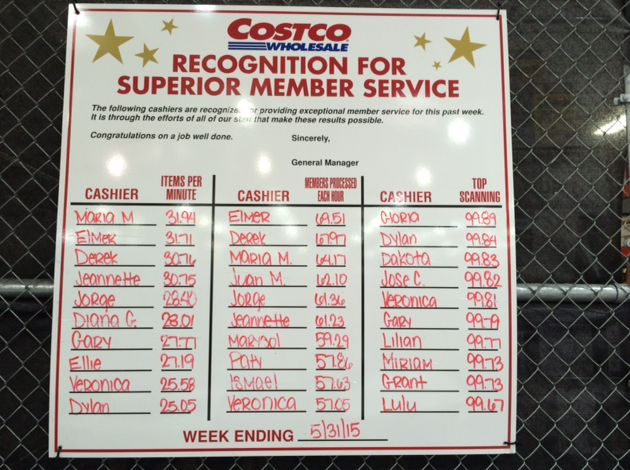 COSTCO
WHOLESALE
RECOGNITION FOR
SUPERIOR MEMBER SERVICE
The following cashiers are recognized for providing exceptional member service for this past week.
It is through the efforts of all of our staff that make these results possible.
Congratulations on a job well done. Sincerely,
General Manager
CASHIER ITEMS PER MINUTE CASHIER MEMBERS PROCESSED EACH HOUR CASHIER TOP SCANNING
MARIA M 31.94 ELMER 69.51 GLORIA 99.89
ELMER 31.71 Derek 67.97 Dylan 99.84
Derek 30.76 MARIA M. 64.17 DAKOTA 99.83
Jeannette 30.75 Juan M. 62.10 Jose C. 99.82
Jorge 28.40 Jorge 61.36 Veronica 99.81
Diana G. 28.01 Jeannette 61.23 Gary 99.79
GARY 27.77 MARYSOL 59.29 Lilian 99.77
Ellie 27.19 PATY 57.86 MIRIAM 99.73
Veronica 25.58 ISMAEL 57.63 Grant 99.73
Dylan 25.05 VERONICA 57.05 Lulu 99.67
WEEK ENDING 5/31/15